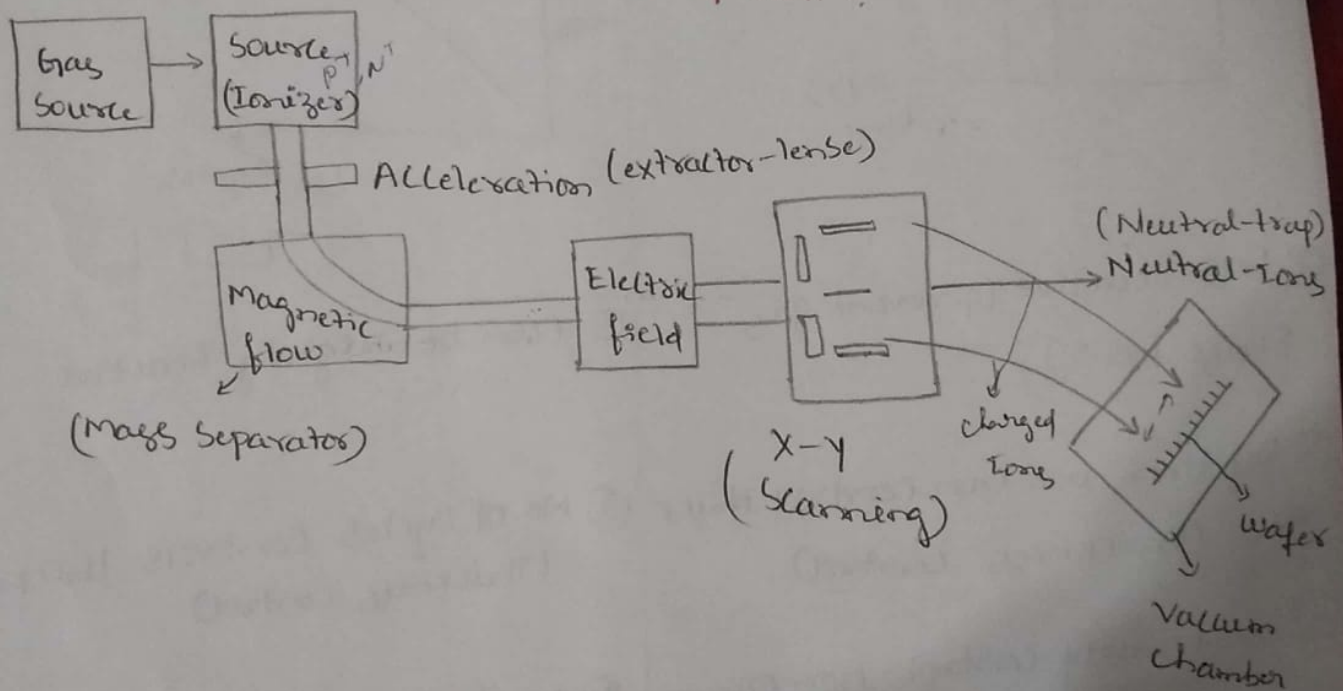 Gas
Source
Source
P+, N+
(Ionizer)
Acceleration (extractor-lense)
Magnetic
flow
(Mass Separator)
Electric
field
X-Y
(Scanning)
(Neutral-trap)
Neutral-Ions
charged
Ions
wafer
Vaccum
chamber